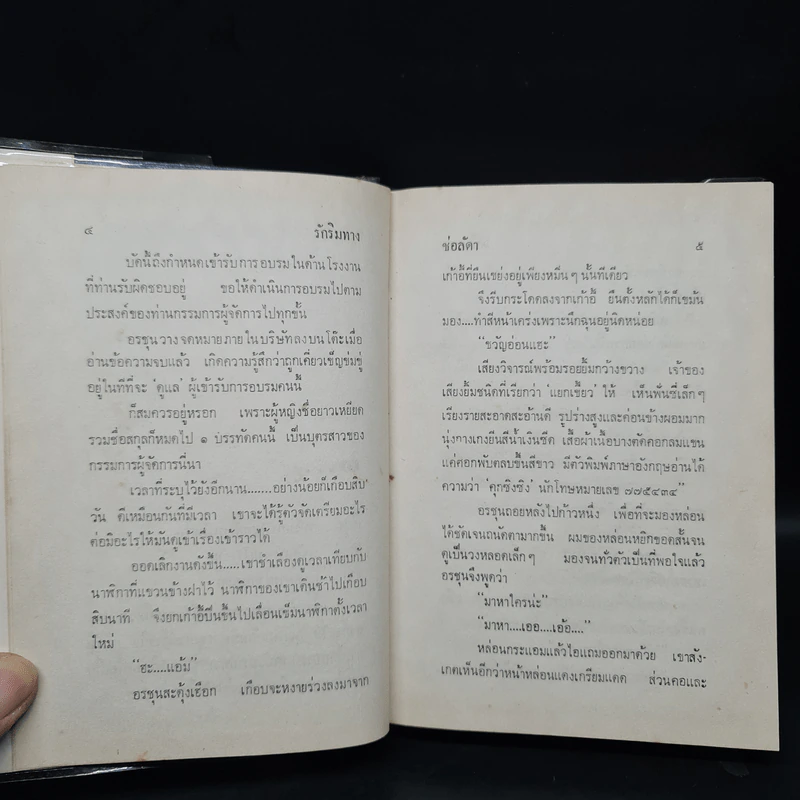 ๔ รักริมทาง
บัดนี้ถึงกำหนดเข้ารับการอบรมในด้านโรงงาน
ที่ท่านรับผิดชอบอยู่ ขอให้ดำเนินการอบรมไปตาม
ประสงค์ของท่านกรรมการผู้จัดการไปทุกขั้น
อรชุนวางจดหมายภายในบริษัทลงบนโต๊ะเมื่อ
อ่านข้อความจบแล้ว เกิดความรู้สึกว่าถูกเคี่ยวเข็ญข่มขู่
อยู่ในทีที่จะ 'ดูแล' ผู้เข้ารับการอบรมคนนี้
ก็สมควรอยู่หรอก เพราะผู้หญิงชื่อยาวเหยียด
รวมชื่อสกุลก็หมดไป ๑ บรรทัดคนนี้ เป็นบุตรสาวของ
กรรมการผู้จัดการนี่นา
เวลาที่ระบุไว้ยังอีกนาน.......อย่างน้อยก็เกือบสิบ
วัน ดีเหมือนกันที่มีเวลา เขาจะได้รู้ตัวจัดเตรียมอะไร
ต่อมิอะไรให้มันดูเข้าเรื่องเข้าราวได้
ออดเลิกงานดังขึ้น.....เขาชำเลืองดูเวลาเทียบกับ
นาฬิกาที่แขวนข้างฝาไว้ นาฬิกาของเขาเดินช้าไปเกือบ
สิบนาที จึงยกเก้าอี้ปีนขึ้นไปเลื่อนเข็มนาฬิกาตั้งเวลา
ใหม่
"ฮะ....แอ้ม"
อรชุนสะดุ้งเฮือก เกือบจะหงายร่วงลงมาจาก
ช่อลัดา ๕
เก้าอี้ที่ยืนเขย่งอยู่เพียงหมิ่นๆ นั้นทีเดียว
จึงรีบกระโดดลงจากเก้าอี้ ยืนตั้งหลักได้ก็เขม้น
มอง....ทำสีหน้าเคร่งเพราะนึกฉุนอยู่นิดหน่อย
"ขวัญอ่อนแฮะ"
เสียงวิจารณ์พร้อมรอยยิ้มกว้างขวาง เจ้าของ
เสียงยิ้มชนิดที่เรียกว่า 'แยกเขี้ยว' ให้ เห็นฟันซี่เล็กๆ
เรียงรายสะอาดสะอ้านดี รูปร่างสูงและค่อนข้างผอมมาก
นุ่งกางเกงยีนสีน้ำเงินซีด เสื้อผ้าเนื้อบางตัดคอกลมแขน
แค่ศอกพับตลบขึ้นสีขาว มีตัวพิมพ์ภาษาอังกฤษอ่านได้
ความว่า 'คุกซิงซิง' นักโทษหมายเลข ๗๗๕๔๓๔"
อรชุนถอยหลังไปก้าวหนึ่ง เพื่อที่จะมองหล่อน
ได้ชัดเจนถนัดตามากขึ้น ผมของหล่อนหยิกขอดสั้นจน
ดูเป็นวงหลอดเล็กๆ มองจนทั่วตัวเป็นที่พอใจแล้ว
อรชุนจึงพูดว่า
"มาหาใครน่ะ"
"มาหา....เออ....เอ้อ...."
หล่อนกระแอมแล้วไอแถมออกมาด้วย เขาสัง-
เกตเห็นอีกว่าหน้าหล่อนแดงเกรียมแดด ส่วนคอและ